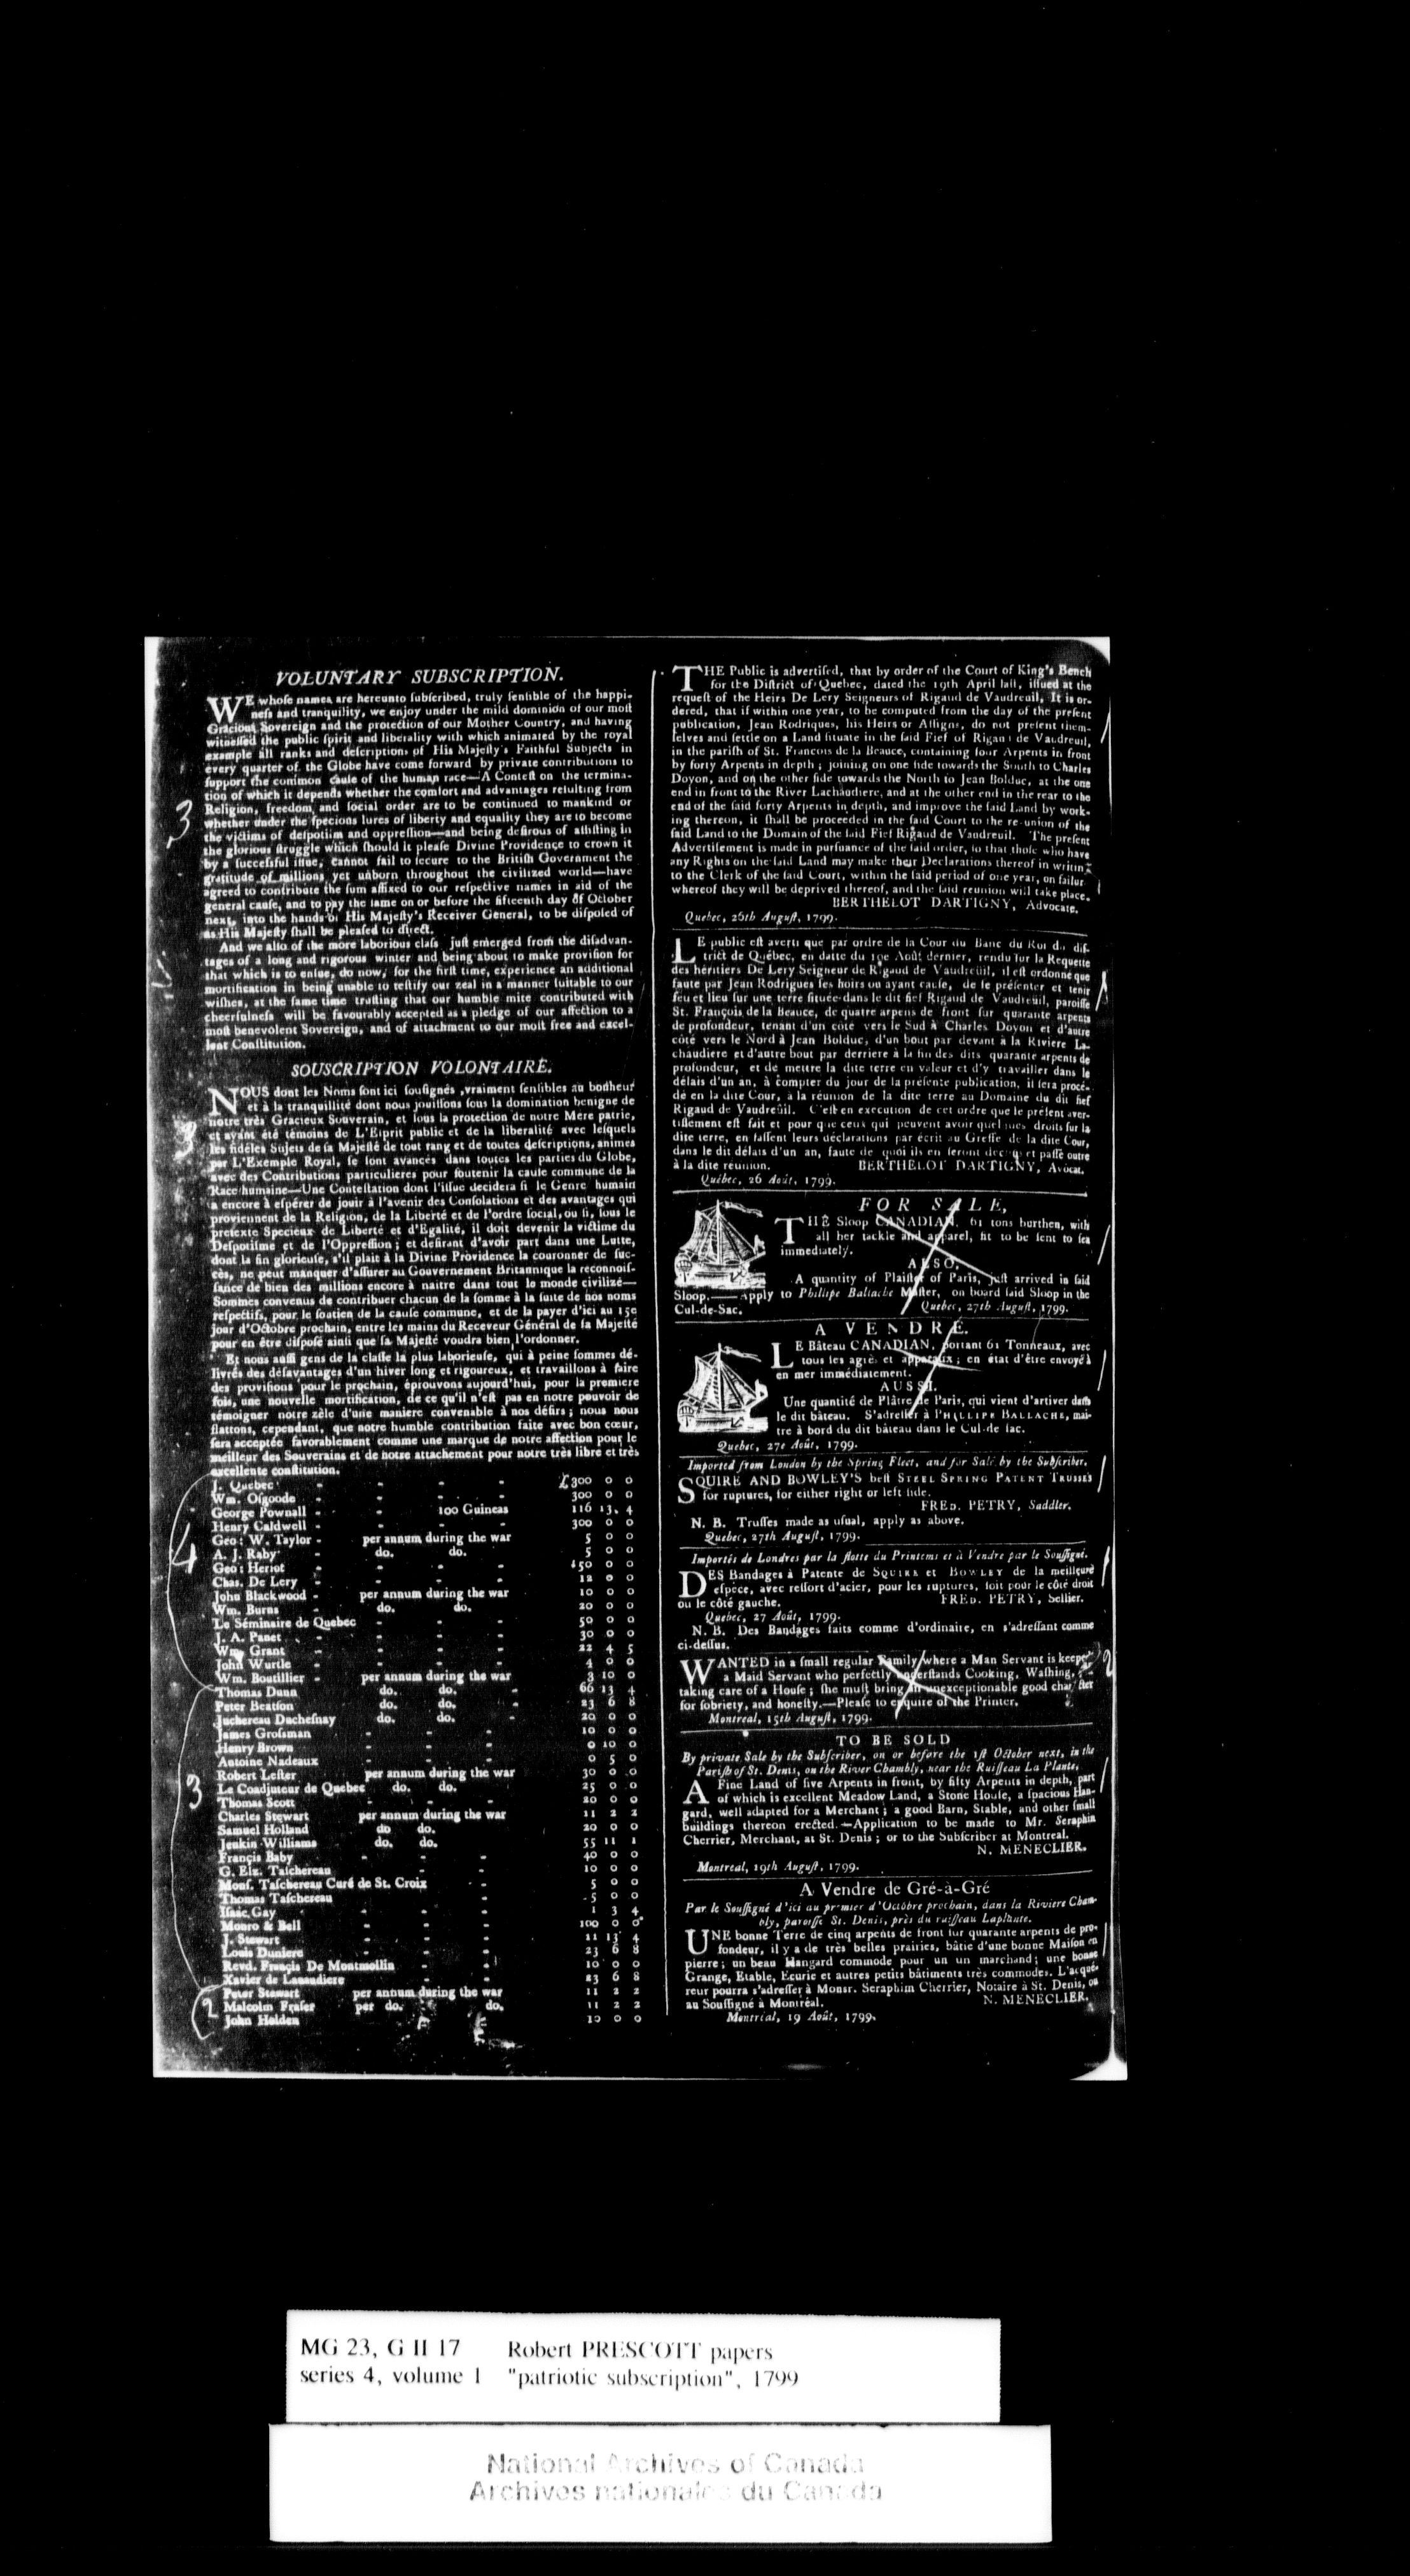 VOLUNTARY SUBSCRIPTION.
WE whoſe names are hereunto ſubſcribed, truly ſenſible of the happi-
neſs and tranquility, we enjoy under the mild dominion of our moſt
Gracious Sovereign and the protection of our Mother Country, and having
witneſſed the public ſpirit and liberality with which animated by the royal
example all ranks and deſcriptions of His Majeſty's Faithful Subjects in
every quarter of the Globe have come forward by private contributions to
ſupport the common cauſe of the human race—A Conteſt on the termina-
tion of which it depends whether the comfort and advantages reſulting from
Religion, freedom and ſocial order are to be continued to mankind or
whether under the ſpecious lures of liberty and equality they are to become
the victims of deſpotiſm and oppreſſion—and being deſirous of aſſiſting in
the glorious ſtruggle which ſhould it pleaſe Divine Providence to crown it
by a ſucceſsful iſſue, cannot fail to ſecure to the Britiſh Government the
gratitude of millions yet unborn throughout the civilized world—have
agreed to contribute the ſum affixed to our reſpective names in aid of the
general cauſe, and to pay the ſame on or before the fifteenth day of October
next, into the hands of His Majeſty's Receiver General, to be diſpoſed of
as His Majeſty ſhall be pleaſed to direct.
And we alſo of the more laborious claſs juſt emerged from the diſadvan-
tages of a long and rigorous winter and being about to make proviſion for
that which is to enſue, do now, for the firſt time, experience an additional
mortification in being unable to teſtify our zeal in a manner ſuitable to our
wiſhes, at the ſame time truſting that our humble mite contributed with
cheerfulneſs will be favourably accepted as a pledge of our affection to a
moſt benevolent Sovereign, and of attachment to our moſt free and excel-
lent Conſtitution.
3
SOUSCRIPTION VOLONTAIRE.
NOUS dont les Noms ſont ici ſouſignés, vraiment ſenſibles au bonheur
et à la tranquillité dont nous jouiſſons ſous la domination benigne de
notre très Gracieux Souverain, et ſous la protection de notre Mere patrie,
et ayant été témoins de L'Eſprit public et de la liberalité avec leſquels
les fidéles Sujets de ſa Majeſté de tout rang et de toutes deſcriptions, animes
par L'Exemple Royal, ſe ſont avancés dans toutes les parties du Globe,
avec des Contributions particulieres pour ſoutenir la cauſe commune de la
Race humaine—Une Conteſtation dont l'iſſue decidera ſi le Genre humain
a encore à eſpérer de jouir à l'avenir des Conſolations et des avantages qui
proviennent de la Religion, de la Liberté et de l'ordre ſocial, ou ſi, ſous le
pretexte Specieux de Liberté et d'Egalité, il doit devenir la victime du
Deſpotiſme et de l'Oppreſſion; et deſirant d'avoir part dans une Lutte,
dont la fin glorieuſe, s'il plait à la Divine Providence la couronner de ſuc-
cès, ne peut manquer d'aſſurer au Gouvernement Britannique la reconnoiſ-
ſance de bien des millions encore à naitre dans tout le monde civilizé—
Sommes convenus de contribuer chacun de la ſomme à la ſuite de nos noms
reſpectifs, pour le ſoutien de la cauſe commune, et de la payer d'ici au 15e
jour d'Octobre prochain, entre les mains du Receveur Général de ſa Majeſté
pour en être diſpoſé ainſi que ſa Majeſté voudra bien l'ordonner.
Et nous auſſi gens de la claſſe la plus laborieuſe, qui à peine ſommes dé-
livrés des déſavantages d'un hiver long et rigoureux, et travaillons à faire
des proviſions pour le prochain, éprouvons aujourd'hui, pour la premiere
fois, une nouvelle mortification, de ce qu'il n'eſt pas en notre pouvoir de
témoigner notre zèle d'une maniere convenable à nos déſirs; nous nous
flattons, cependant, que notre humble contribution faite avec bon cœur,
ſera acceptée favorablement comme une marque de notre affection pour le
meilleur des Souverains et de notre attachement pour notre très libre et très
excellente conſtitution.
3
J. Quebec - - - - £300 0 0
Wm. Oſgoode - - - - 300 0 0
George Pownall - - 100 Guineas 116 13 4
Henry Caldwell - - - - 300 0 0
Geo: W. Taylor - per annum during the war 5 0 0
A. J. Raby - do. do. 5 0 0
Geo: Heriot - - - - 150 0 0
Chas. De Lery - - - - 12 0 0
John Blackwood - per annum during the war 10 0 0
Wm. Burns - do. do. 20 0 0
Le Séminaire de Quebec - - - 50 0 0
J. A. Panet - - - - 30 0 0
Wm. Grant - - - - 22 4 5
John Wurtle - - - - 4 0 0
Wm. Boutillier per annum during the war 3 10 0
4
Thomas Dunn do. do. - 66 13 4
Peter Beatſon do. do. - 23 6 8
Juchereau Ducheſnay do. do. - 20 0 0
James Groſsman - - - 10 0 0
Henry Brown - - - 0 10 0
Antoine Nadeaux - - - 0 5 0
Robert Leſter per annum during the war 30 0 0
Le Coadjuteur de Quebec do. do. 25 0 0
Thomas Scott - - - 20 0 0
Charles Stewart per annum during the war 11 2 2
Samuel Holland do do. 20 0 0
Jenkin Williams do. do. 55 11 1
Françis Baby - - - 40 0 0
G. Elz. Taſchereau - - 10 0 0
Monſ. Taſchereau Curé de St. Croix - - 5 0 0
Thomas Taſchereau - - 5 0 0
Iſaac Gay - - - 1 3 4
Monro & Bell - - - 100 0 0
J. Stewart - - - 11 13 4
Louis Duniere - - - 23 6 8
Revd. Françis De Montmollin - - 10 0 0
Xavier de Lanaudiere - - 23 6 8
3
Peter Stewart per annum during the war 11 2 2
Malcolm Fraſer per do. do. 11 2 2
John Holden 10 0 0
2
THE Public is advertiſed, that by order of the Court of King's Bench
for the Diſtrict of Quebec, dated the 19th April laſt, iſſued at the
requeſt of the Heirs De Lery Seigneurs of Rigaud de Vaudreuil, It is or-
dered, that if within one year, to be computed from the day of the preſent
publication, Jean Rodriques, his Heirs or Aſſigns, do not preſent them-
ſelves and ſettle on a Land ſituate in the ſaid Fief of Rigaud de Vaudreuil,
in the pariſh of St. Francois de la Beauce, containing four Arpents in front
by forty Arpents in depth; joining on one ſide towards the South to Charles
Doyon, and on the other ſide towards the North to Jean Bolduc, at the one
end in front to the River Lachaudiere, and at the other end in the rear to the
end of the ſaid forty Arpents in depth, and improve the ſaid Land by work-
ing thereon, it ſhall be proceeded in the ſaid Court to the re-union of the
ſaid Land to the Domain of the ſaid Fief Rigaud de Vaudreuil. The preſent
Advertiſement is made in purſuance of the ſaid order, ſo that thoſe who have
any Rights on the ſaid Land may make their Declarations thereof in writing
to the Clerk of the ſaid Court, within the ſaid period of one year, on failur
whereof they will be deprived thereof, and the ſaid reunion will take place.
BERTHELOT DARTIGNY, Advocate.
Quebec, 26th Auguſt, 1799.
LE public eſt averti que par ordre de la Cour du Banc du Roi du diſ-
trict de Québec, en datte du 19e Août dernier, rendu ſur la Requette
des héritiers De Lery Seigneur de Rigaud de Vaudreüil, il eſt ordonné que
faute par Jean Rodrigues ſes hoirs ou ayant cauſe, de ſe préſenter et tenir
feu et lieu ſur une terre ſituée dans le dit fief Rigaud de Vaudreuil, paroiſſe
St. François de la Beauce, de quatre arpens de front ſur quarante arpents
de profondeur, tenant d'un coté vers le Sud à Charles Doyon et d'autre
côté vers le Nord à Jean Bolduc, d'un bout par devant à la Riviere La-
chaudiere et d'autre bout par derriere à la fin des dits quarante arpents de
profondeur, et de mettre la dite terre en valeur et d'y travailler dans le
délais d'un an, à compter du jour de la préſente publication, il ſera procé-
dé en la dite Cour, à la réunion de la dite terre au Domaine du dit fief
Rigaud de Vaudreüil. C'eſt en execution de cet ordre que le préſent aver-
tiſſement eſt fait et pour que ceux qui peuvent avoir quelques droits ſur la
dite terre, en faſſent leurs déclarations par écrit au Greffe de la dite Cour,
dans le dit délais d'un an, faute de quoi ils en ſeront dechus et paſſé outre
à la dite réunion. BERTHELOT DARTIGNY, Avocat.
Québec, 26 Août, 1799.
FOR SALE,
THE Sloop CANADIAN, 61 tons burthen, with
all her tackle and apparel, fit to be ſent to ſea
immediately.
ALSO.
A quantity of Plaiſter of Paris, juſt arrived in ſaid
Sloop.——Apply to Phillipe Ballache Maſter, on board ſaid Sloop in the
Cul-de-Sac. Quebec, 27th Auguſt, 1799.
A VENDRE.
LE Bâteau CANADIAN, portant 61 Tonneaux, avec
tous les agiès et apparaux; en état d'être envoyé à
en mer immédiatement.
AUSSI.
Une quantité de Plâtre de Paris, qui vient d'artiver dans
le dit bâteau. S'adreſſer à PHILLIPE BALLACHE, mai-
tre à bord du dit bâteau dans le Cul-de ſac.
Quebec, 27e Août, 1799.
Imported from London by the Spring Fleet, and for Sale by the Subſcriber.
SQUIRE AND BOWLEY'S beſt STEEL SPRING PATENT TRUSSES
for ruptures, for either right or left ſide.
FRED. PETRY, Saddler.
N. B. Truſſes made as uſual, apply as above.
Quebec, 27th Auguſt, 1799.
Importés de Londres par la flotte du Printems et à Vendre par le Souſſigné.
DES Bandages à Patente de SQUIRE et BOWLEY de la meilleure
eſpéce, avec reſſort d'acier, pour les ruptures, ſoit pour le côté droit
ou le côté gauche. FRED. PETRY, Sellier.
Quebec, 27 Août, 1799.
N. B. Des Bandages faits comme d'ordinaire, en s'adreſſant comme
ci-deſſus.
WANTED in a ſmall regular Family where a Man Servant is keept
a Maid Servant who perfectly underſtands Cooking, Waſhing,
taking care of a Houſe; ſhe muſt bring an unexceptionable good character
for ſobriety, and honeſty.—Pleaſe to enquire of the Printer.
Montreal, 15th Auguſt, 1799.
TO BE SOLD
By private Sale by the Subſcriber, on or before the 1ſt October next, in the
Pariſh of St. Denis, on the River Chambly, near the Ruiſſeau La Plante,
A Fine Land of five Arpents in front, by fifty Arpents in depth, part
of which is excellent Meadow Land, a Stone Houſe, a ſpacious Han-
gard, well adapted for a Merchant; a good Barn, Stable, and other ſmall
buildings thereon erected.—Application to be made to Mr. Seraphin
Cherrier, Merchant, at St. Denis; or to the Subſcriber at Montreal.
N. MENECLIER.
Montreal, 19th Auguſt, 1799.
A Vendre de Gré-à-Gré
Par le Souſſigné d'ici au premier d'Octobre prochain, dans la Riviere Cham-
bly, paroiſſe St. Denis, près du ruiſſeau Laplante.
UNE bonne Terre de cinq arpents de front ſur quarante arpents de pro-
fondeur, il y a de très belles prairies, bâtie d'une bonne Maiſon en
pierre; un beau Hangard commode pour un un marchand; une bonne
Grange, Etable, Ecurie et autres petits bâtiments très commodes. L'acqué-
reur pourra s'adreſſer à Monsr. Seraphim Cherrier, Notaire à St. Denis, ou
au Souſſigné à Montréal. N. MENECLIER.
Montréal, 19 Août, 1799.
MG 23, G II 17 Robert PRESCOTT papers
series 4, volume 1 "patriotic subscription", 1799
National Archives of Canada
Archives nationales du Canada